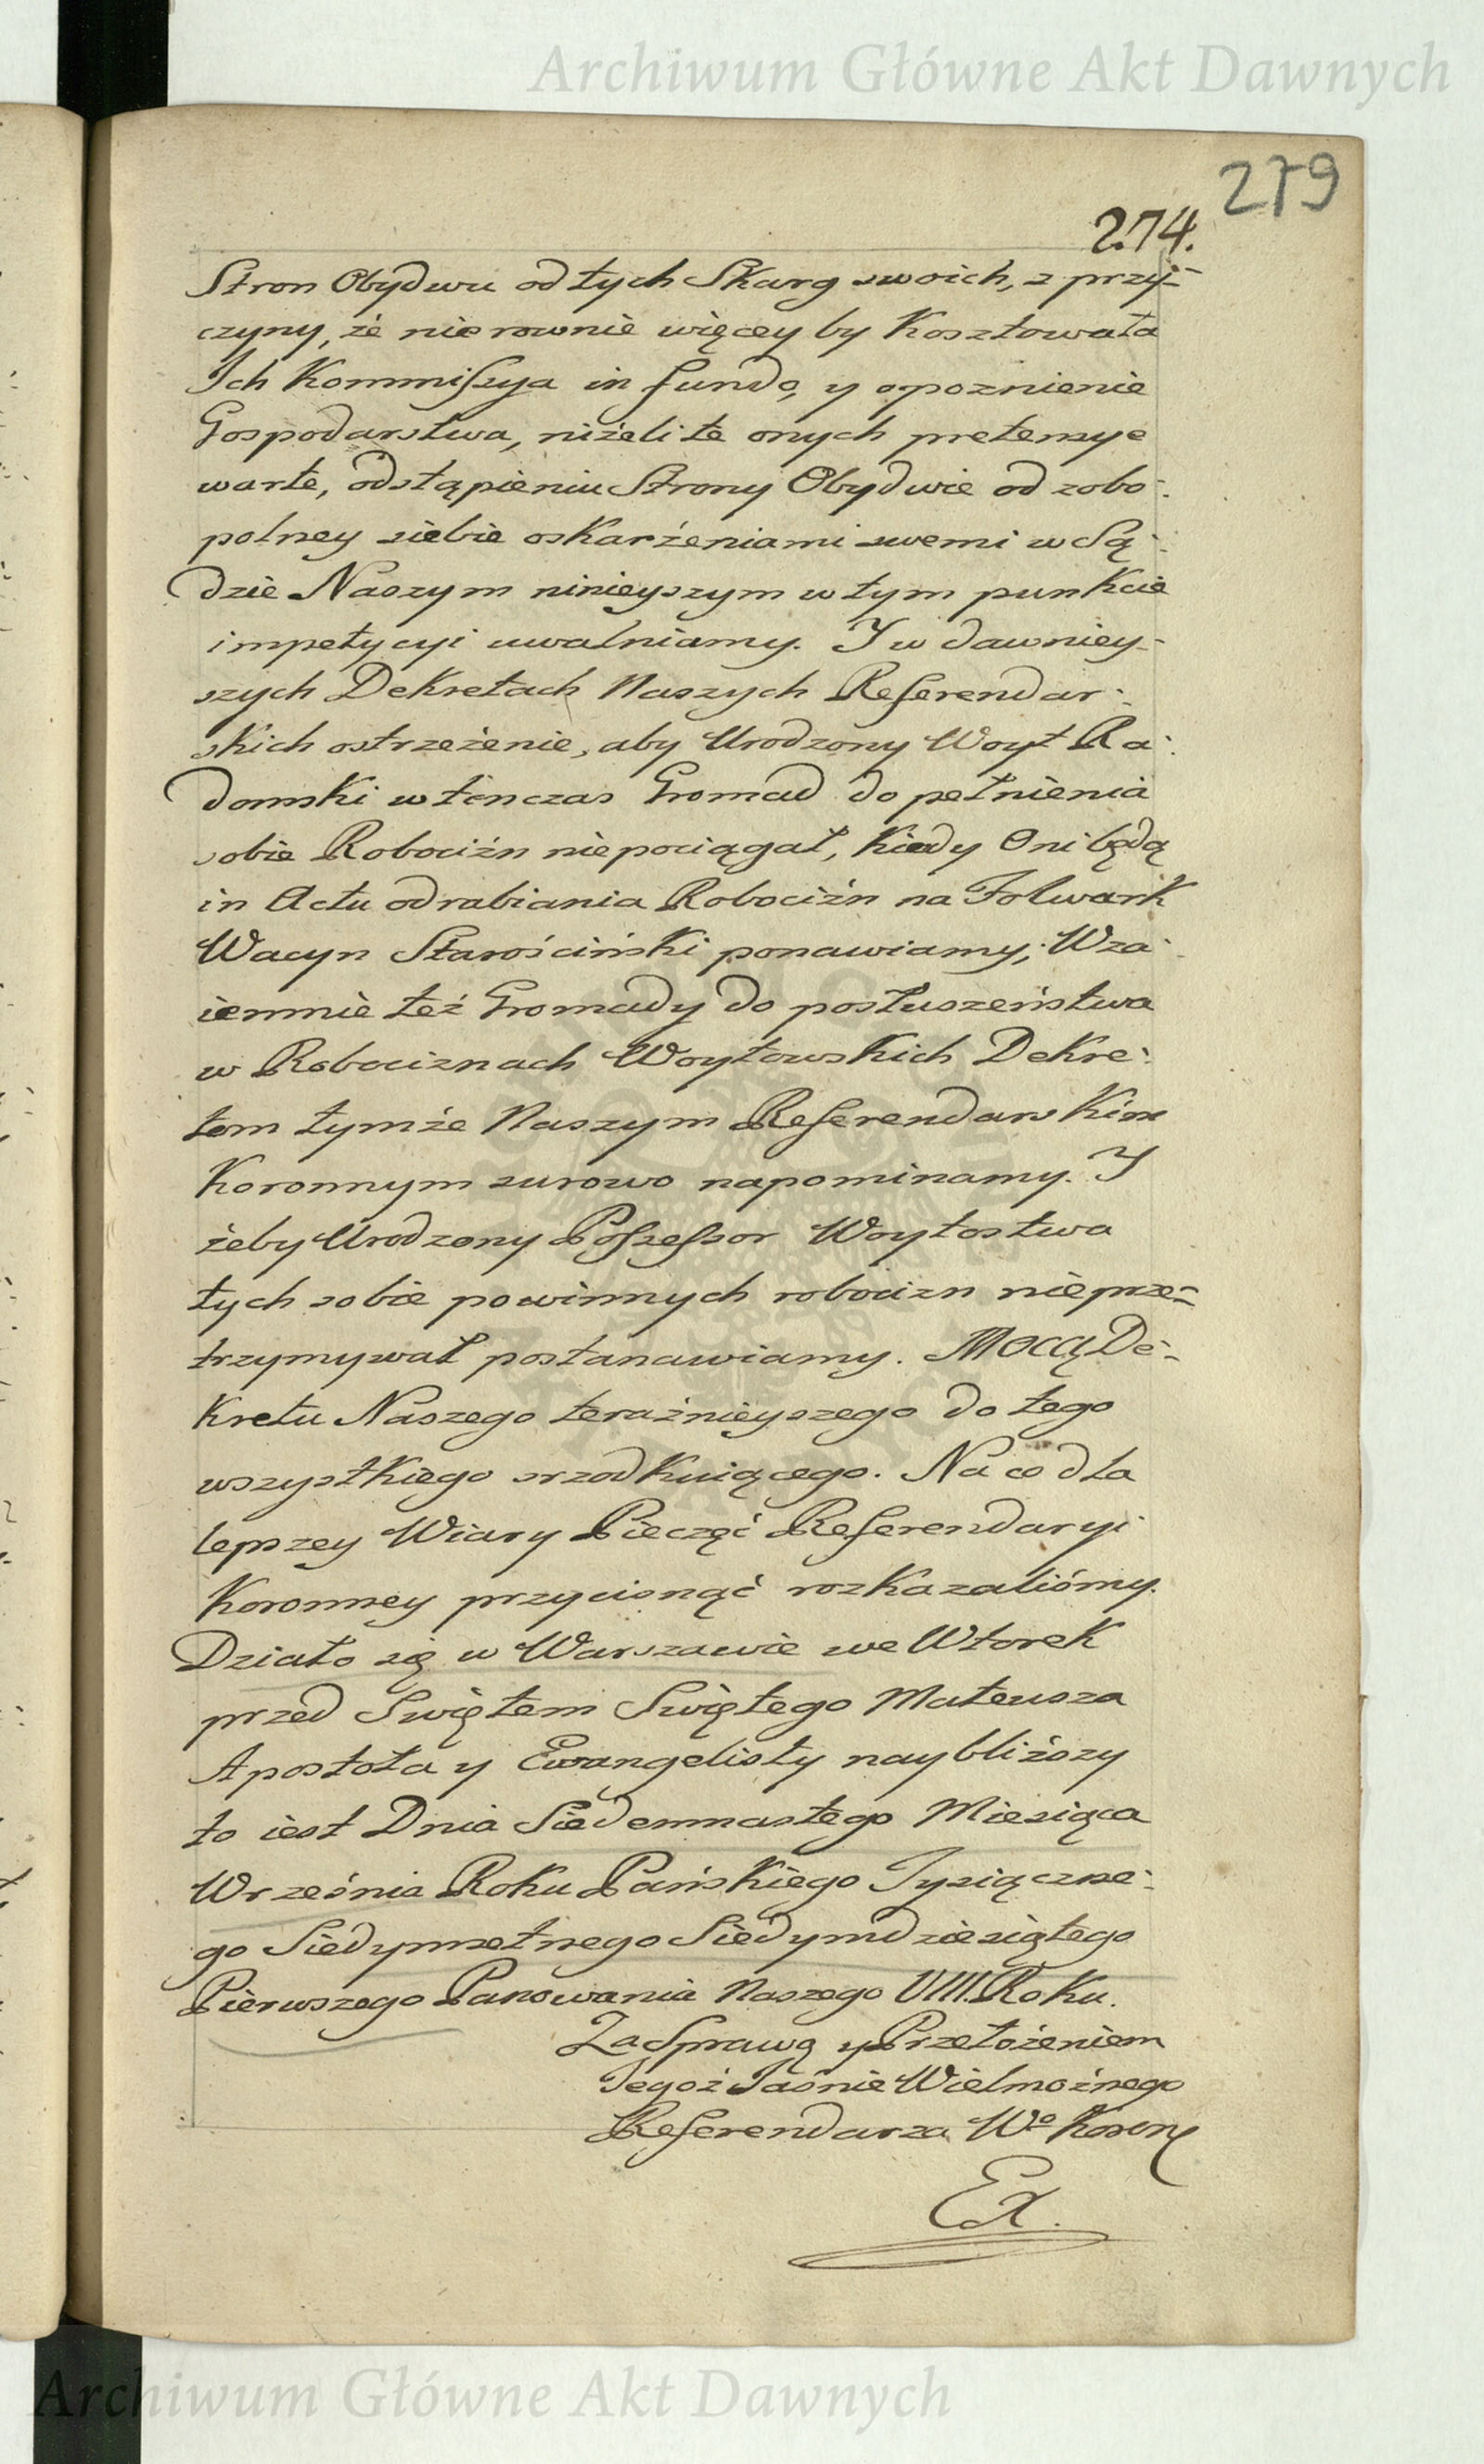 Archiwum Główne Akt Dawnych
279
274.
Stron Obydwu od tych Skarg swoich, z przy-
czyny, że nierownie więcey by Kosztowała
Ich Kommiſsyja in fundo, y opoznienie
Gospodarstwa, niżeli te onych pretensye
warte, odstąpieniu Strony Obydwie od zobo-
polney siebie oskarżeniami swemi w Są-
dzie Naszym ninieyszym w tym punkcie
impetycyi uwalniamy. I w dawniey-
szych Dekretach Naszych Referendar-
skich ostrzeżenie, aby Urodzony Woyt Ra-
domski w tenczas Gromad do pełnienia
sobie Robocizn niepociągał, Kiedy Oni będą
in Actu odrabiania Robocizn na Folwark
Wacyn Starościński ponawiamy; Wza-
iemnie też Gromady do posłuszeństwa
w Robociznach Woytowskich Dekre-
tem tymże Naszym Referendarskim
Koronnym surowo napominamy. I
żeby Urodzony Poſseſsor Woytostwa
tych sobie powinnych robocizn nieprze-
trzymywał postanawiamy. Mocą De-
Kretu Naszego teraźnieyszego do tego
wszystkiego srzodkuiącego. Na co dla
lepszey Wiary Pieczęć Referendaryi
Koronney przycisnąć rozkazaliśmy.
Działo się w Warszawie we Wtorek
przed Swiętem Swiętego Mateusza
Apostoła y Ewangelisty naybliższy
to iest Dnia Siedemnastego Miesiąca
Września Roku Pańskiego Tysiączne-
go Siedymsetnego Siedymdziesiątego
Pierwszego Panowania Naszego VIII. Roku.
Za Sprawą y Przełożeniem
Tegoż Jaśnie Wielmożnego
Referendarza Wo Korony
Ex.
Archiwum Główne Akt Dawnych